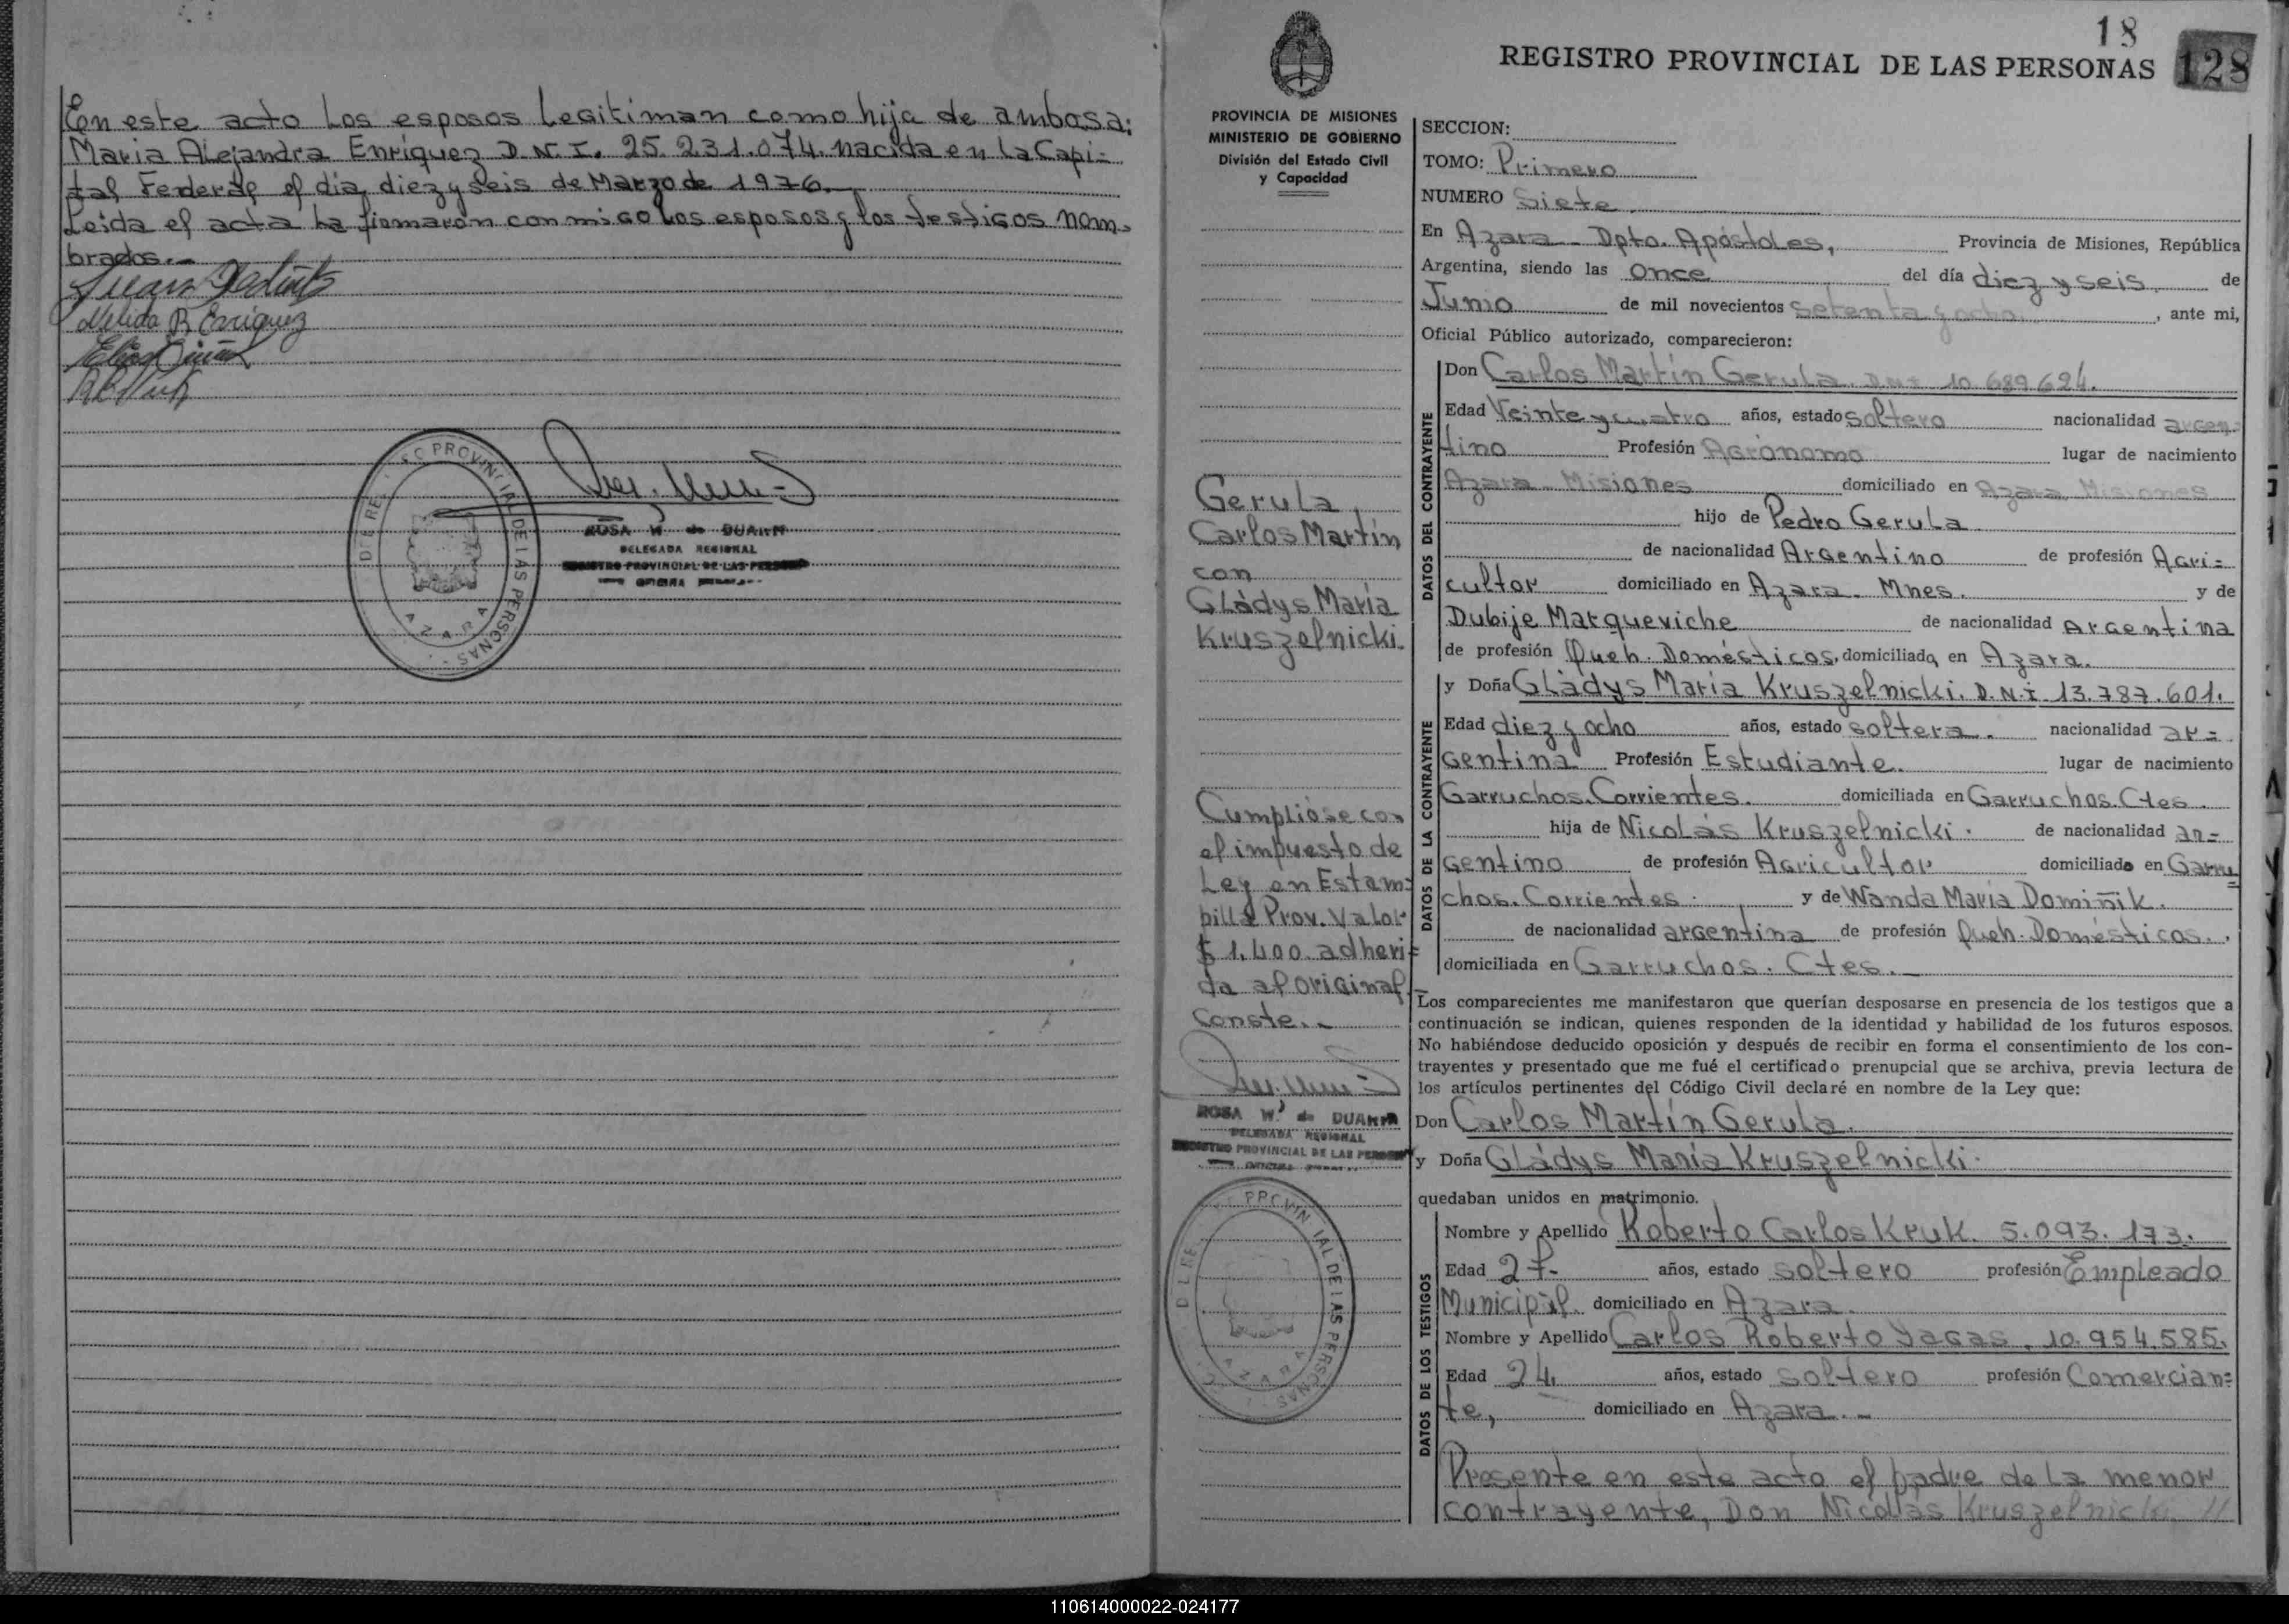 En este acto los esposos Legitiman como hija de ambos a:
Maria Alejandra Enríquez D.N.I. 25.231.074. nacida en la Capi=
tal Federal el día diez y seis de Marzo de 1976.
Leida el acta la firmaron conmigo los esposos y los testigos nom-
brados.-
Nelida R Enriquez
ROSA W. de DUARTE
DELEGADA REGIONAL
REGISTRO PROVINCIAL DE LAS PERSONAS
PROVINCIAL DE LAS PERSONAS
AZARA
18
REGISTRO PROVINCIAL DE LAS PERSONAS 128
PROVINCIA DE MISIONES
MINISTERIO DE GOBIERNO
División del Estado Civil
y Capacidad
Gerula,
Carlos Martín
con
Gládys María
Kruszelnicki.
Cumplióse con
el impuesto de
Ley en Estam=
pilla Prov. Valor
$ 1.400 adheri=
da al original.
Conste.-
ROSA W. de DUARTE
DELEGADA REGIONAL
REGISTRO PROVINCIAL DE LAS PERSONAS
PROVINCIAL DE LAS PERSONAS
AZARA
SECCION:
TOMO: Primero
NUMERO Siete
En Azara - Dpto. Apóstoles, Provincia de Misiones, República
Argentina, siendo las once del día diez y seis de
Junio de mil novecientos setenta y ocho, ante mi,
Oficial Público autorizado, comparecieron:
DATOS DEL CONTRAYENTE
Don Carlos Martín Gerula. DNI 10.689.624.
Edad Veinte y cuatro años, estado soltero nacionalidad argen-
tino Profesión Agrónomo lugar de nacimiento
Azara - Misiones domiciliado en Azara Misiones
hijo de Pedro Gerula
de nacionalidad Argentino de profesión Agri=
cultor domiciliado en Azara. Mnes. y de
Dubije Marqueviche de nacionalidad Argentina
de profesión Queh. Domésticos, domiciliada en Azara.
DATOS DE LA CONTRAYENTE
y Doña Gládys María Kruszelnicki. D.N.I 13.787.601.
Edad diez y ocho años, estado soltera. nacionalidad ar=
gentina Profesión Estudiante. lugar de nacimiento
Garruchos. Corrientes. domiciliada en Garruchos. Ctes.
hija de Nicolás Kruszelnicki. de nacionalidad ar=
gentino de profesión Agricultor domiciliado en Garru
chos. Corrientes. y de Wanda María Dominik.
de nacionalidad argentina de profesión Queh. Domésticos.
domiciliada en Garruchos. Ctes.-
Los comparecientes me manifestaron que querían desposarse en presencia de los testigos que a
continuación se indican, quienes responden de la identidad y habilidad de los futuros esposos.
No habiéndose deducido oposición y después de recibir en forma el consentimiento de los con-
trayentes y presentado que me fué el certificado prenupcial que se archiva, previa lectura de
los artículos pertinentes del Código Civil declaré en nombre de la Ley que:
Don Carlos Martín Gerula.
y Doña Gládys María Kruszelnicki.
quedaban unidos en matrimonio.
DATOS DE LOS TESTIGOS
Nombre y Apellido Roberto Carlos Kruk. 5.093.173.
Edad 27.- años, estado soltero profesión Empleado
Municipal. domiciliado en Azara.
Nombre y Apellido Carlos Roberto Yagas. 10.954.585.
Edad 24. años, estado soltero profesión Comercian=
te, domiciliado en Azara.-
Presente en este acto el padre de la menor
contrayente, Don Nicolás Kruszelnicki //
110614000022-024177